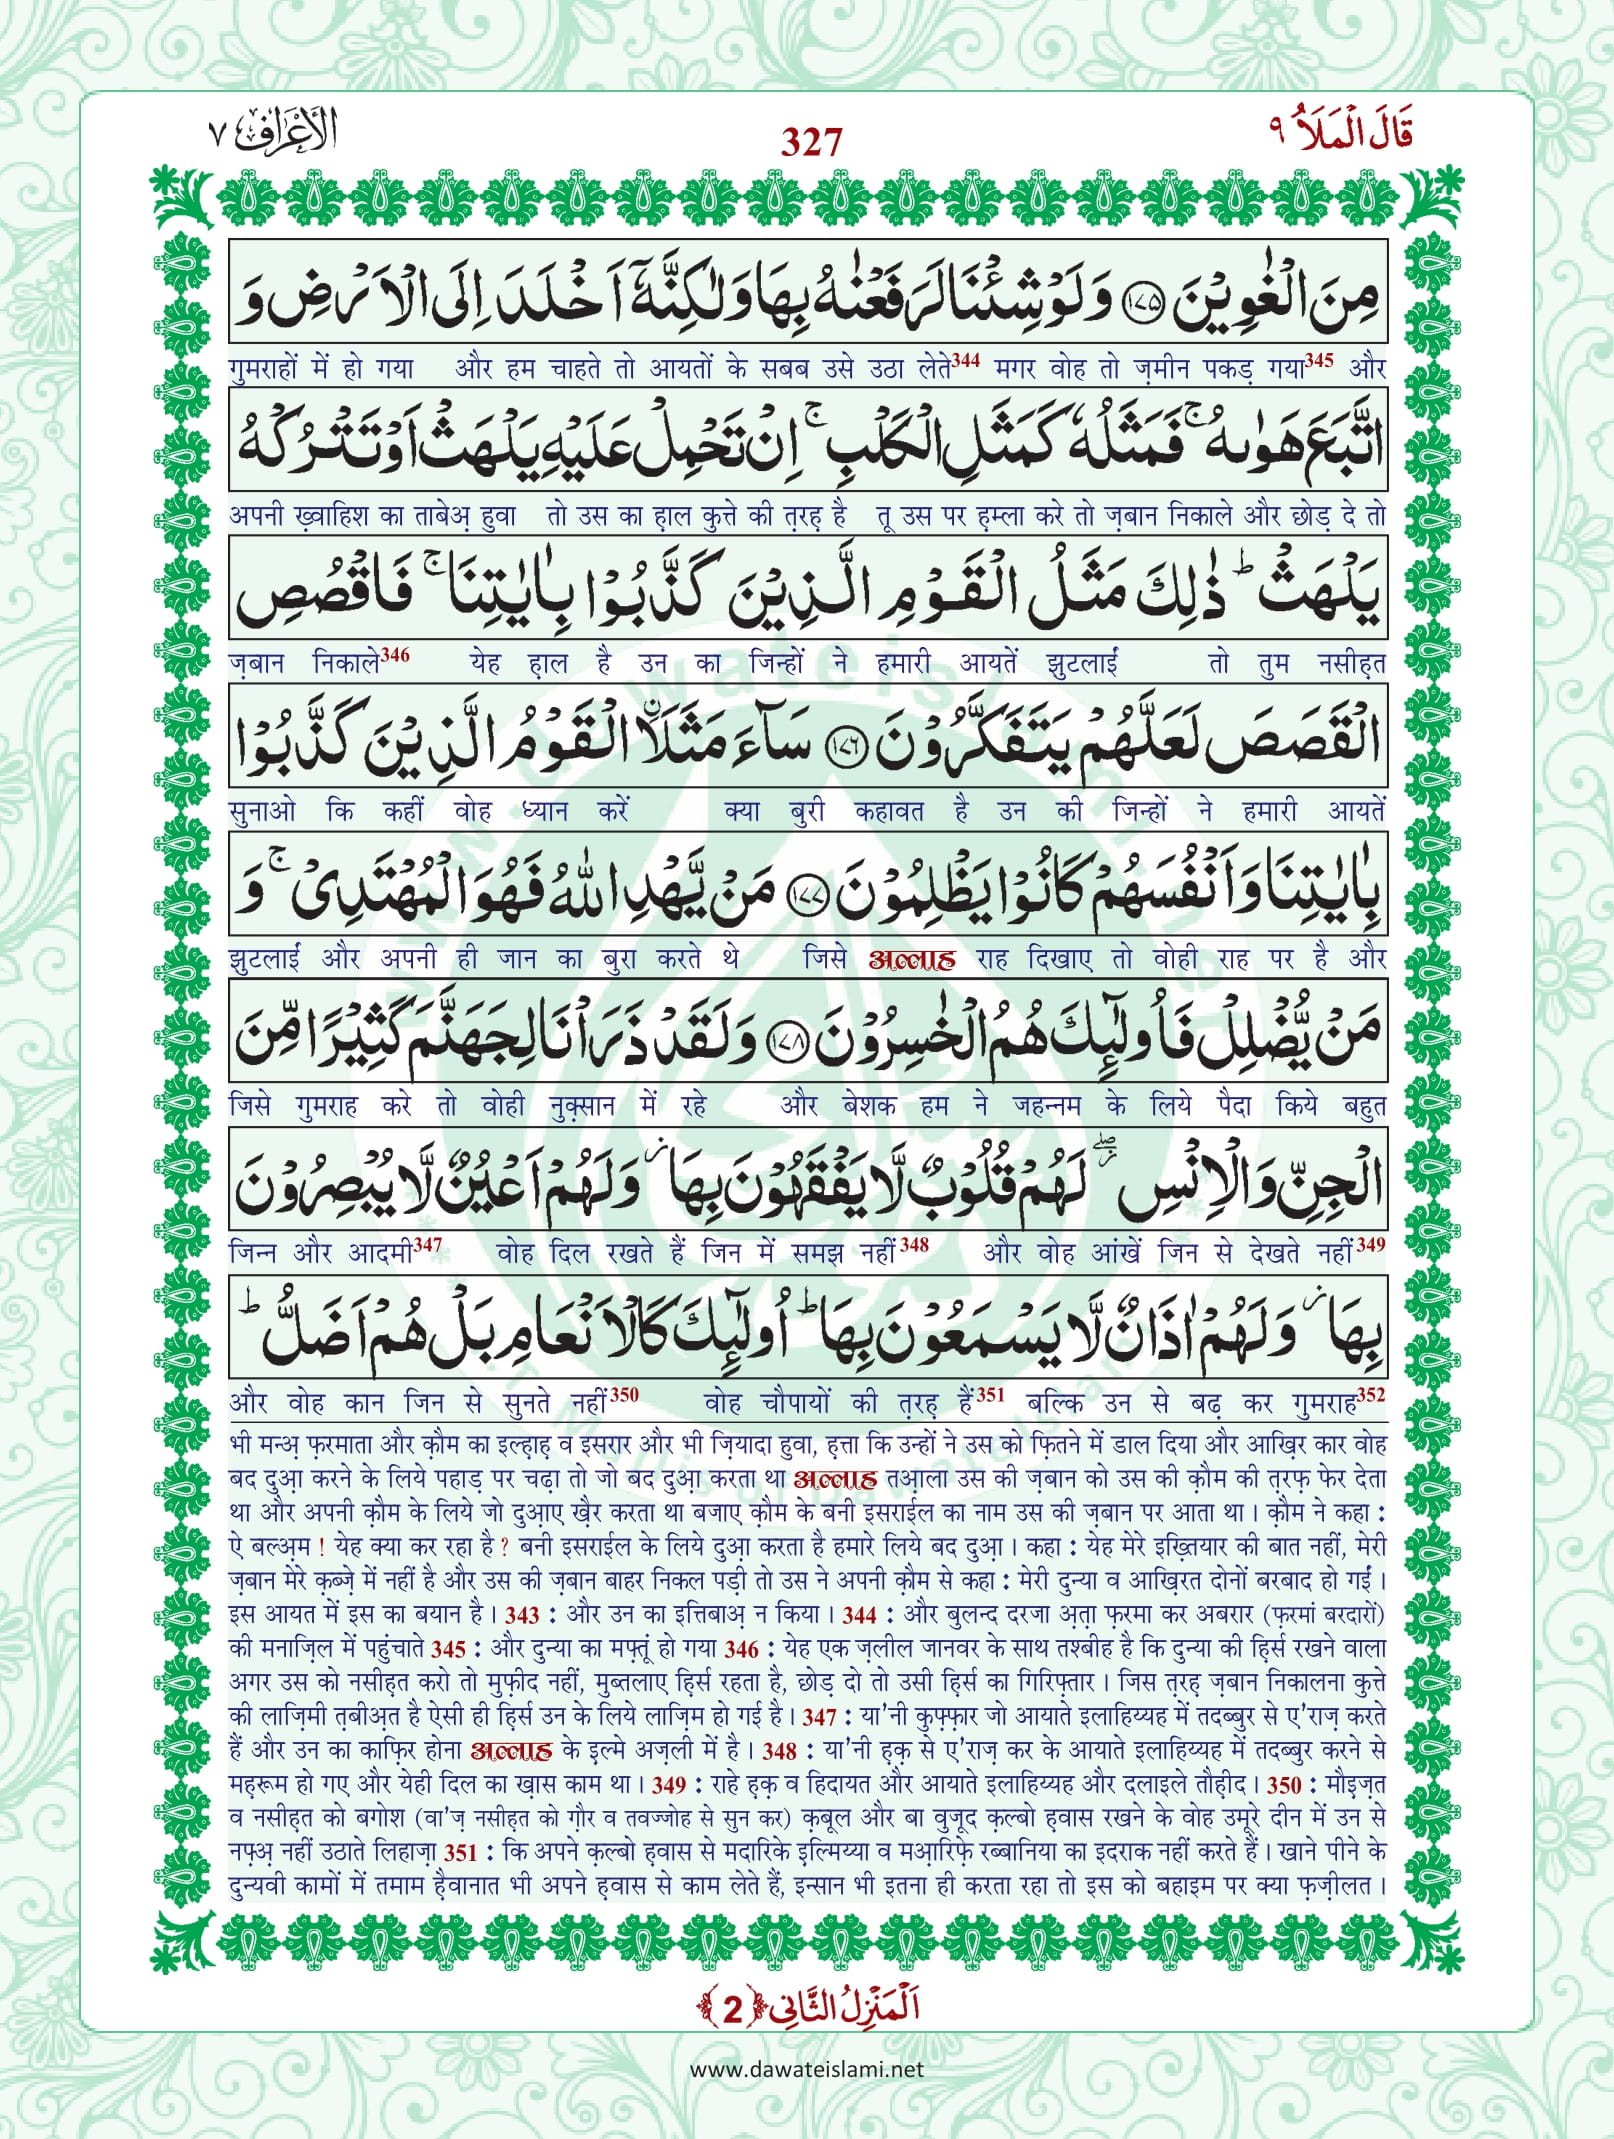 قَالَ الْمَلَاُ ٩
327
الْاَعْرَاف ٧
مِنَ الْغٰوِیْنَ ﴿۱۷۵﴾ وَلَوْ شِئْنَا لَرَفَعْنٰهُ بِهَا وَلٰكِنَّهٗۤ اَخْلَدَ اِلَی الْاَرْضِ وَ
गुमराहों में हो गया और हम चाहते तो आयतों के सबब उसे उठा लेते344 मगर वोह तो ज़मीन पकड़ गया345 और
اتَّبَعَ هَوٰىهُ ۚ فَمَثَلُهٗ كَمَثَلِ الْكَلْبِ ۚ اِنْ تَحْمِلْ عَلَیْهِ یَلْهَثْ اَوْ تَتْرُكْهُ
अपनी ख़्वाहिश का ताबेअ़ हुवा तो उस का ह़ाल कुत्ते की त़रह़ है तू उस पर ह़म्ला करे तो ज़बान निकाले और छोड़ दे तो
یَلْهَثْ ؕ ذٰلِكَ مَثَلُ الْقَوْمِ الَّذِیْنَ كَذَّبُوْا بِاٰیٰتِنَا ۚ فَاقْصُصِ
ज़बान निकाले346 येह ह़ाल है उन का जिन्हों ने हमारी आयतें झुटलाईं तो तुम नसीह़त
الْقَصَصَ لَعَلَّهُمْ یَتَفَكَّرُوْنَ ﴿۱۷۶﴾ سَآءَ مَثَلَاۨ الْقَوْمُ الَّذِیْنَ كَذَّبُوْا
सुनाओ कि कहीं वोह ध्यान करें क्या बुरी कहावत है उन की जिन्हों ने हमारी आयतें
بِاٰیٰتِنَا وَ اَنْفُسَهُمْ كَانُوْا یَظْلِمُوْنَ ﴿۱۷۷﴾ مَنْ یَّهْدِ اللّٰهُ فَهُوَ الْمُهْتَدِیْ ۚ وَ
झुटलाईं और अपनी ही जान का बुरा करते थे जिसे अल्लाह राह दिखाए तो वोही राह पर है और
مَنْ یُّضْلِلْ فَاُولٰٓىِٕكَ هُمُ الْخٰسِرُوْنَ ﴿۱۷۸﴾ وَلَقَدْ ذَرَاْنَا لِجَهَنَّمَ كَثِیْرًا مِّنَ
जिसे गुमराह करे तो वोही नुक़्सान में रहे और बेशक हम ने जहन्नम के लिये पैदा किये बहुत
الْجِنِّ وَالْاِنْسِ ۖؗ لَهُمْ قُلُوْبٌ لَّا یَفْقَهُوْنَ بِهَا ؗ وَلَهُمْ اَعْیُنٌ لَّا یُبْصِرُوْنَ
जिन्न और आदमी347 वोह दिल रखते हैं जिन में समझ नहीं348 और वोह आंखें जिन से देखते नहीं349
بِهَا ؗ وَلَهُمْ اٰذَانٌ لَّا یَسْمَعُوْنَ بِهَا ؕ اُولٰٓىِٕكَ كَالْاَنْعَامِ بَلْ هُمْ اَضَلُّ ؕ
और वोह कान जिन से सुनते नहीं350 वोह चौपायों की त़रह़ हैं351 बल्कि उन से बढ़ कर गुमराह352
भी मन्अ़ फ़रमाता और क़ौम का इल्ह़ाह़ व इसरार और भी ज़ियादा हुवा, ह़त्ता कि उन्हों ने उस को फ़ितने में डाल दिया और आख़िर कार वोह
बद दुआ़ करने के लिये पहाड़ पर चढ़ा तो जो बद दुआ़ करता था अल्लाह तआ़ला उस की ज़बान को उस की क़ौम की त़रफ़ फेर देता
था और अपनी क़ौम के लिये जो दुआ़ए ख़ैर करता था बजाए क़ौम के बनी इसराईल का नाम उस की ज़बान पर आता था । क़ौम ने कहा :
ऐ बल्अ़म ! येह क्या कर रहा है ? बनी इसराईल के लिये दुआ़ करता है हमारे लिये बद दुआ़ । कहा : येह मेरे इख़्तियार की बात नहीं, मेरी
ज़बान मेरे क़ब्ज़े में नहीं है और उस की ज़बान बाहर निकल पड़ी तो उस ने अपनी क़ौम से कहा : मेरी दुन्या व आख़िरत दोनों बरबाद हो गईं ।
इस आयत में इस का बयान है । 343 : और उन का इत्तिबाअ़ न किया । 344 : और बुलन्द दरजा अ़त़ा फ़रमा कर अबरार (फ़रमां बरदारों)
की मनाज़िल में पहुंचाते 345 : और दुन्या का मफ़्तूं हो गया 346 : येह एक ज़लील जानवर के साथ तश्बीह है कि दुन्या की ह़िर्स रखने वाला
अगर उस को नसीह़त करो तो मुफ़ीद नहीं, मुब्तलाए ह़िर्स रहता है, छोड़ दो तो उसी ह़िर्स का गिरिफ़्तार । जिस त़रह़ ज़बान निकालना कुत्ते
की लाज़िमी त़बीअ़त है ऐसी ही ह़िर्स उन के लिये लाज़िम हो गई है । 347 : या'नी कुफ़्फ़ार जो आयाते इलाहिय्यह में तदब्बुर से ए'राज़ करते
हैं और उन का काफ़िर होना अल्लाह के इ़ल्मे अज़ली में है । 348 : या'नी ह़क़ से ए'राज़ कर के आयाते इलाहिय्यह में तदब्बुर करने से
मह़रूम हो गए और येही दिल का ख़ास काम था । 349 : राहे ह़क़ व हिदायत और आयाते इलाहिय्यह और दलाइले तौह़ीद । 350 : मौइज़त
व नसीह़त को बगोश (वा'ज़ नसीह़त को ग़ौर व तवज्जोह से सुन कर) क़बूल और बा वुजूद क़ल्बो ह़वास रखने के वोह उमूरे दीन में उन से
नफ़्अ़ नहीं उठाते लिहाज़ा 351 : कि अपने क़ल्बो ह़वास से मदारिके इ़ल्मिय्या व मआ़रिफ़े रब्बानिया का इदराक नहीं करते हैं । खाने पीने के
दुन्यवी कामों में तमाम ह़ैवानात भी अपने ह़वास से काम लेते हैं, इन्सान भी इतना ही करता रहा तो इस को बहाइम पर क्या फ़ज़ीलत ।
اَلْمَنْزِلُ الثَّانِی ﴿2﴾
www.dawateislami.net